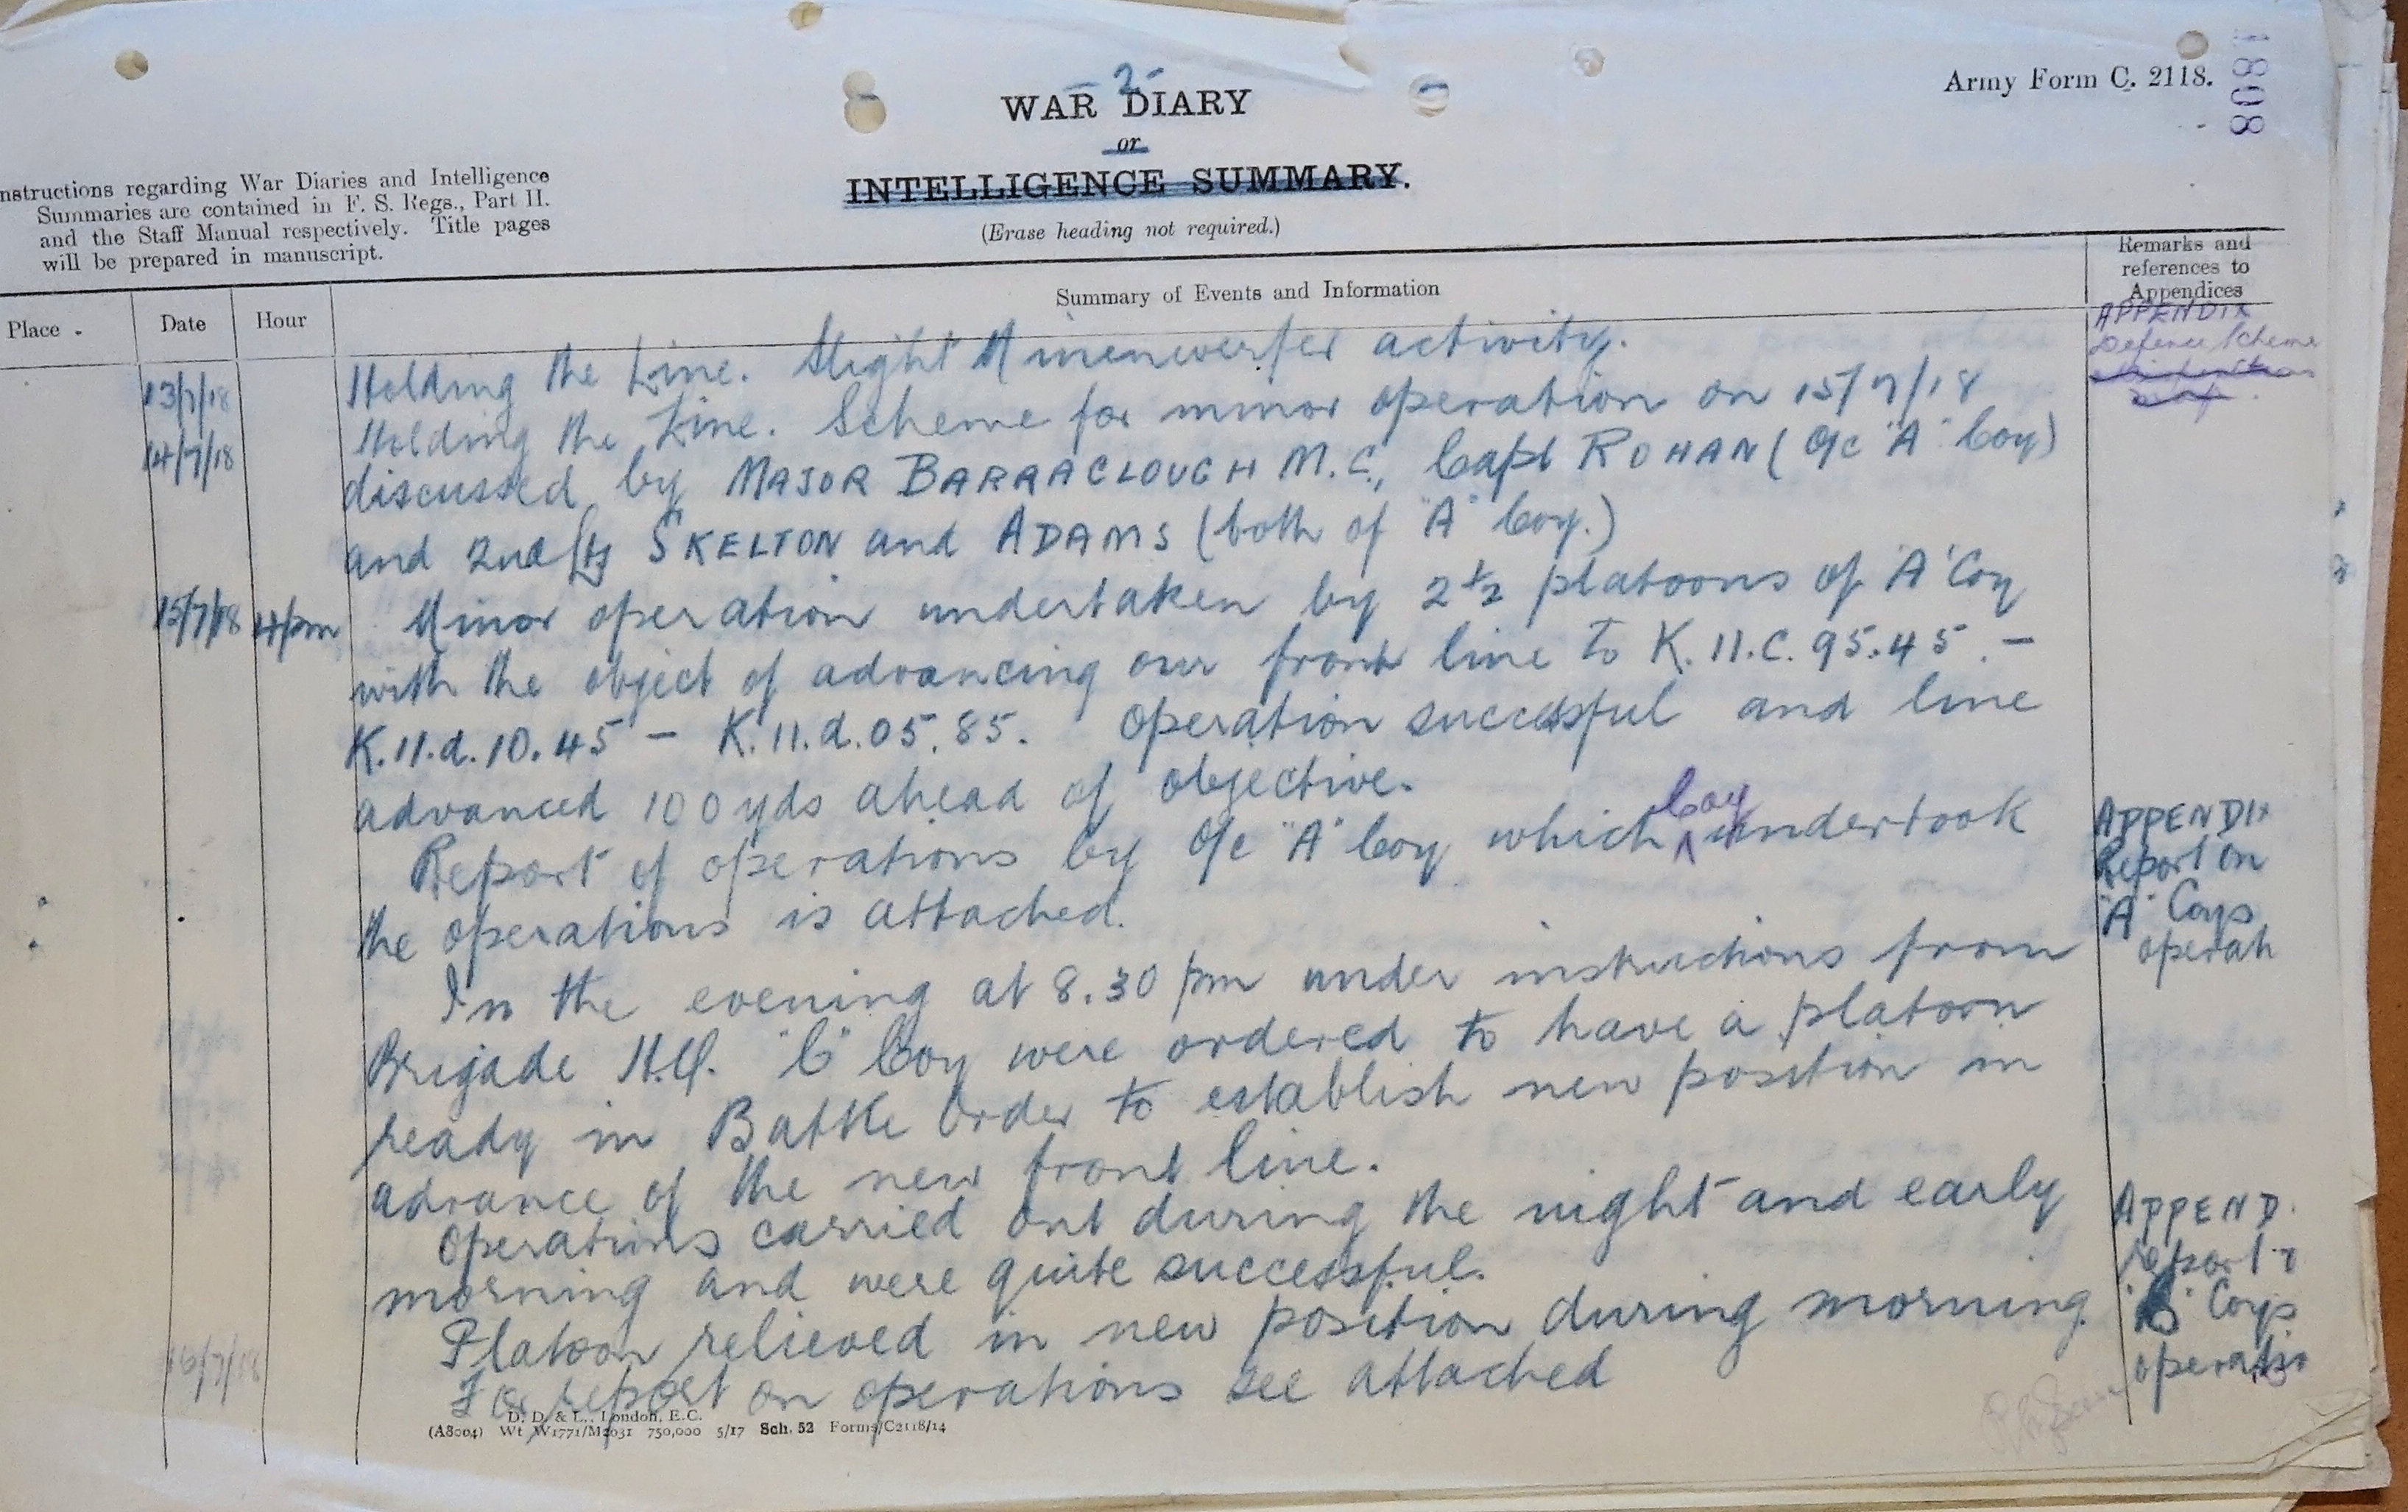 - 2 -
WAR DIARY
or
INTELLIGENCE SUMMARY.
(Erase heading not required.)
Army Form C. 2118.
1808
nstructions regarding War Diaries and Intelligence
Summaries are contained in F. S. Regs., Part II.
and the Staff Manual respectively. Title pages
will be prepared in manuscript.
Place Date Hour Summary of Events and Information Remarks and
references to
Appendices
APPENDIX
Defence Scheme
13/7/18 Holding the Line. Slight Minenwerfer activity.
14/7/18 Holding the Line. Scheme for minor operation on 15/7/18
discussed by MAJOR BARRACLOUGH M.C., Capt ROHAN (O/C "A" Coy)
and 2nd Lts SKELTON and ADAMS (both of "A" Coy.)
15/7/18 4pm Minor operation undertaken by 2½ platoons of "A" Coy
with the object of advancing our front line to K.11.c.95.45. -
K.11.d.10.45 - K.11.d.05.85. Operation successful and line
advanced 100yds ahead of objective.
Report of operations by O/C "A" Coy which Coy undertook
the operations is attached.
APPENDIX
Report on
"A" Coys
operati
In the evening at 8.30 pm under instructions from
Brigade H.Q. "C" Coy were ordered to have a platoon
ready in Battle Order to establish new position in
advance of the new front line.
Operations carried out during the night and early
morning and were quite successful.
APPEND.
report
Coys
operatio
16/7/18 Platoon relieved in new position during morning.
For report on operations see attached
D. D. & L., London, E.C.
(A8004) Wt W1771/M2031 750,000 5/17 Sch. 52 Forms/C2118/14